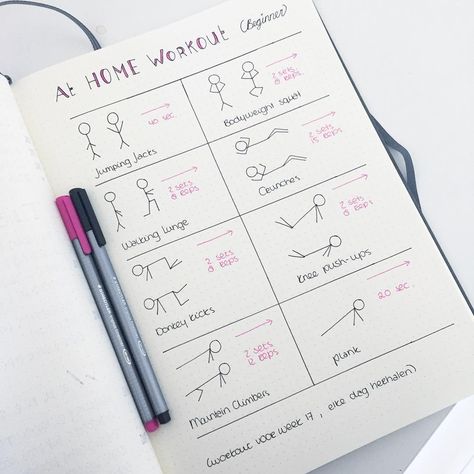 At HOME WORKOUT (Beginner)
40 sec.
Jumping Jacks
2 sets
8 Reps.
Bodyweight squat
2 sets
8 Reps
Walking lunge
2 sets
15 Reps
Crunches
2 sets
8 Reps
Donkey kicks
2 sets
8 Reps
Knee push-ups
2 sets
12 Reps
Climbers
20 sec.
plank
(workout voor week 17, elke dag herhalen)